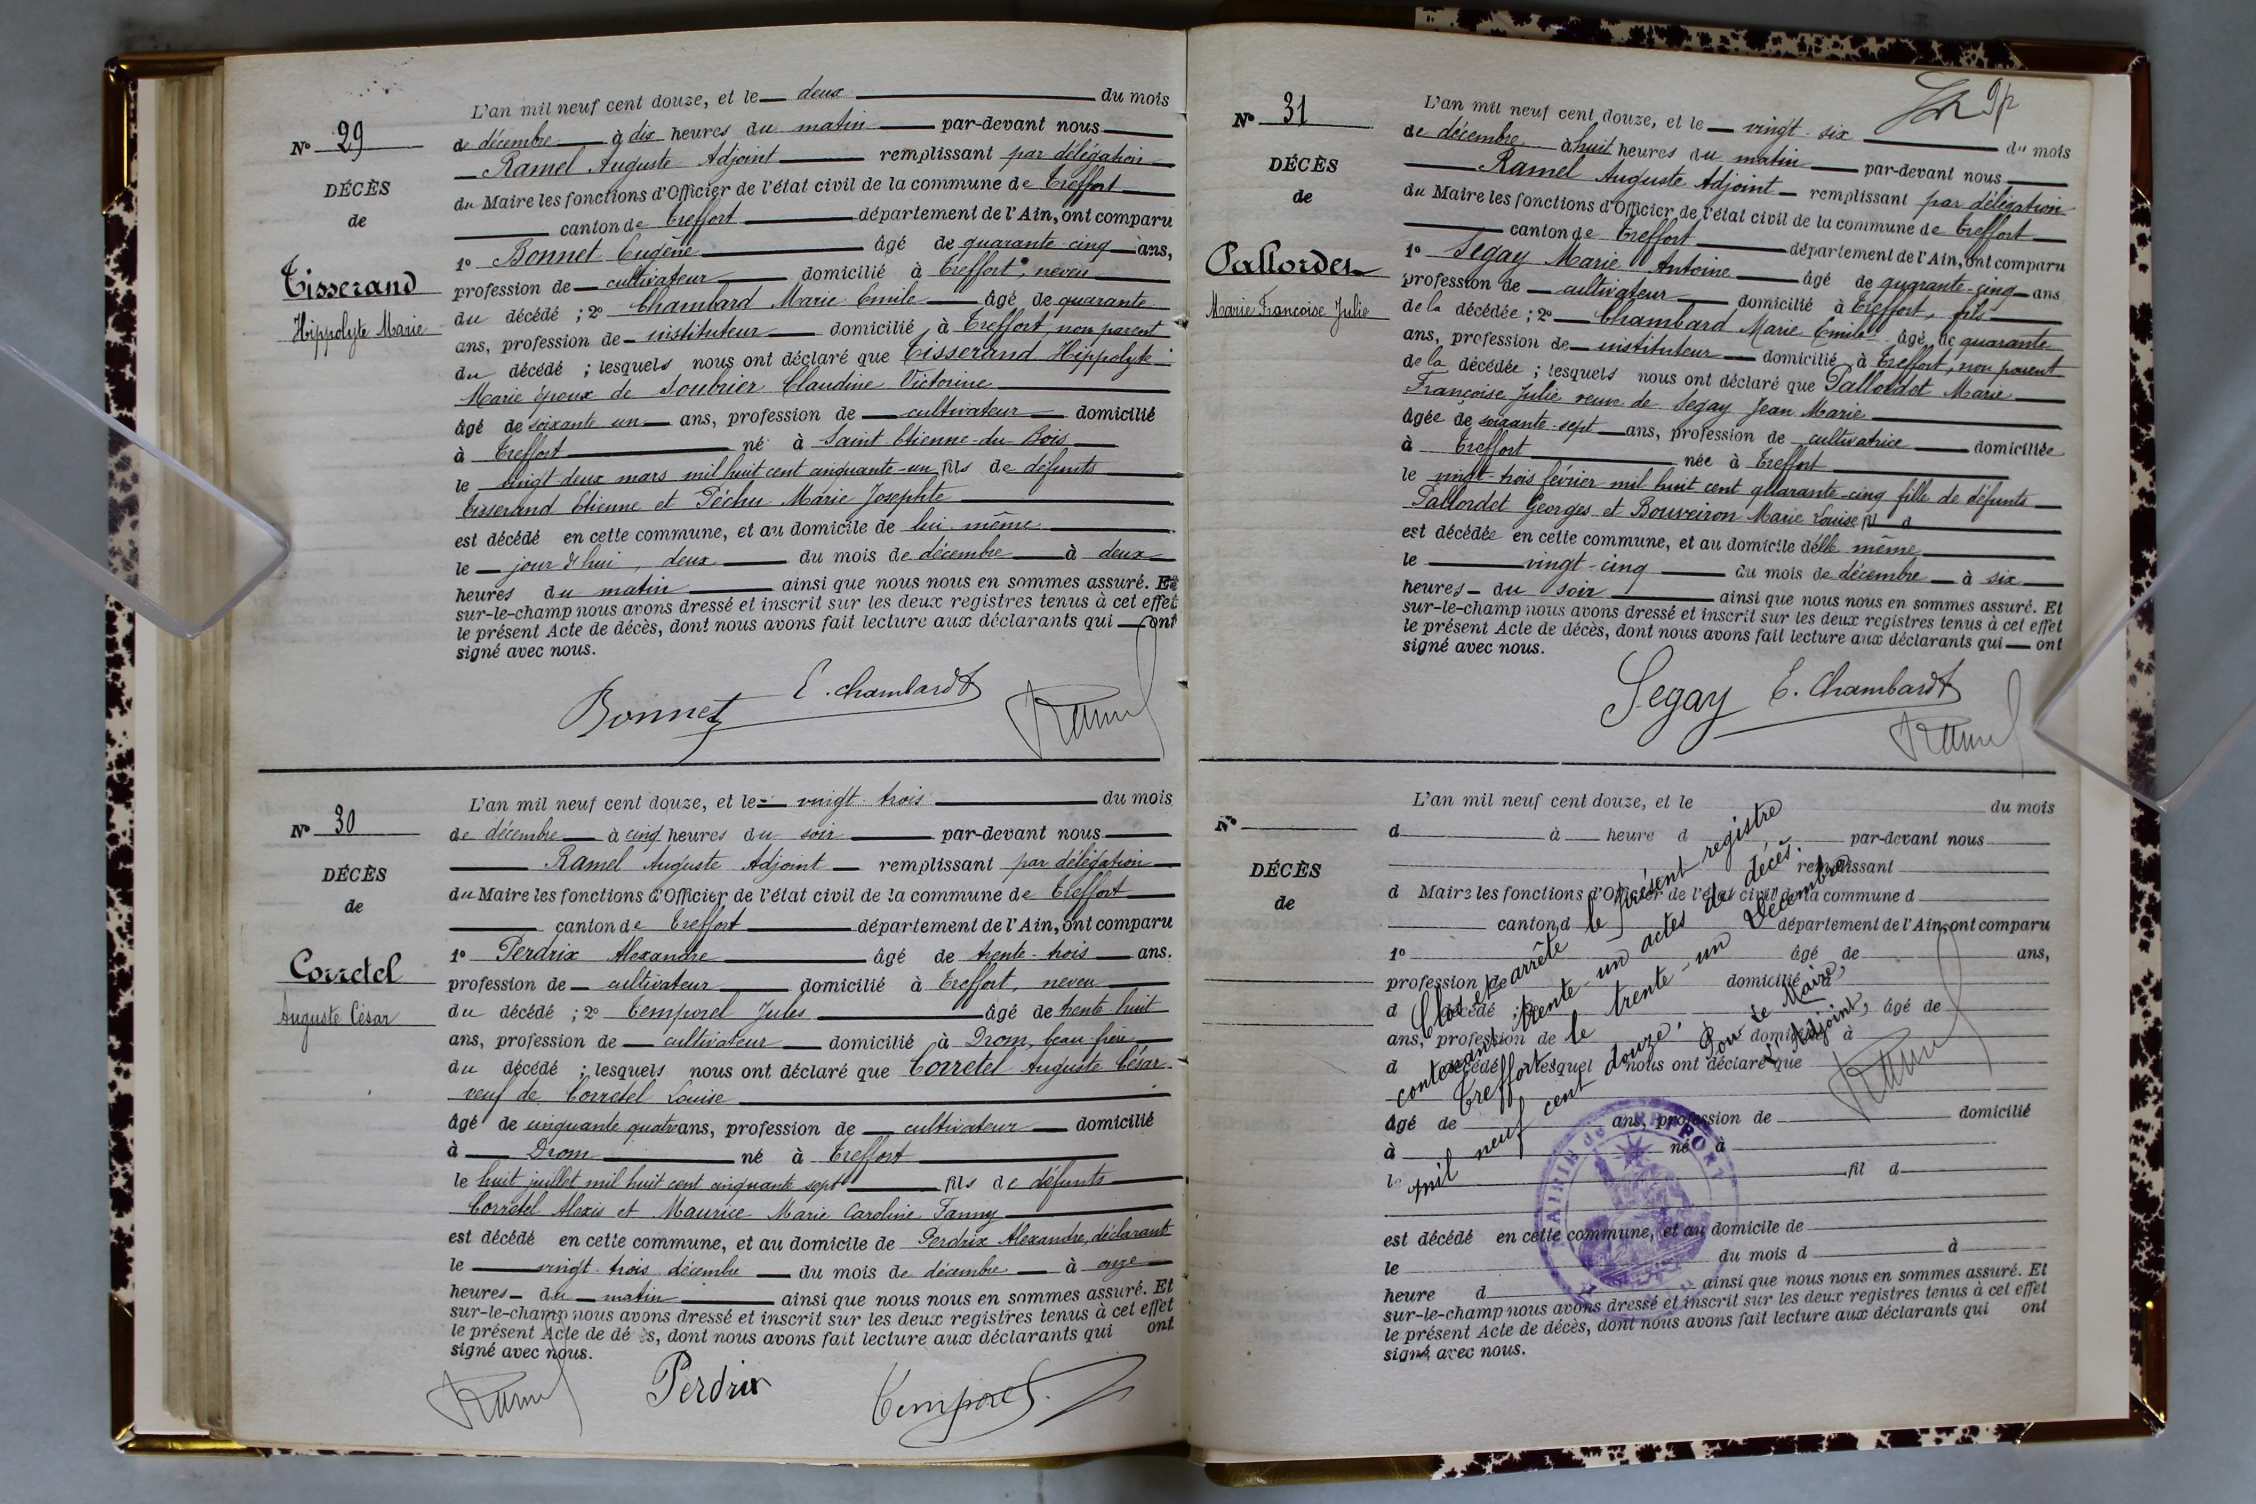 N° 29
DÉCÈS
de
Tisserand
Hippolyte Marie
L'an mil neuf cent douze, et le deux du mois
de décembre à dix heures du matin par-devant nous
Ramel Auguste Adjoint remplissant par délégation
du Maire les fonctions d'Officier de l'état civil de la commune de Treffort
canton de Treffort département de l'Ain, ont comparu
1° Bonnet Eugène âgé de quarante cinq ans,
profession de cultivateur domicilié à Treffort, neveu
du décédé ; 2° Chambard Marie Emile âgé de quarante
ans, profession de instituteur domicilié à Treffort, non parent
du décédé ; lesquels nous ont déclaré que Tisserand Hippolyte
Marie époux de Soubrier Claudine Victorine
âgé de soixante un ans, profession de cultivateur domicilié
à Treffort né à Saint Etienne-du Bois
le vingt deux mars mil huit cent cinquante-un fils de défunts
Tisserand Etienne et Péchu Marie Josephte
est décédé en cette commune, et au domicile de lui même
le jour d'hui, deux du mois de décembre à deux
heures du matin ainsi que nous nous en sommes assuré. Et
sur-le-champ nous avons dressé et inscrit sur les deux registres tenus à cet effet
le présent Acte de décès, dont nous avons fait lecture aux déclarants qui ont
signé avec nous.
Bonnet E. Chambard Ramel
N° 30
DÉCÈS
de
Corretel
Auguste César
L'an mil neuf cent douze, et le vingt trois du mois
de décembre à cinq heures du soir par-devant nous
Ramel Auguste Adjoint remplissant par délégation
du Maire les fonctions d'Officier de l'état civil de la commune de Treffort
canton de Treffort département de l'Ain, ont comparu
1° Perdrix Alexandre âgé de trente-trois ans.
profession de cultivateur domicilié à Treffort, neveu
du décédé ; 2° Temporel Jules âgé de trente huit
ans, profession de cultivateur domicilié à Drom, beau frère
du décédé ; lesquels nous ont déclaré que Corretel Auguste César
veuf de Corretel Louise
âgé de cinquante quatre ans, profession de cultivateur domicilié
à Drom né à Treffort
le huit juillet mil huit cent cinquante sept fils de défunts
Corretel Alexis et Maurice Marie Caroline Fanny
est décédé en cette commune, et au domicile de Perdrix Alexandre, déclarant
le vingt trois décembre du mois de décembre à onze
heures du matin ainsi que nous nous en sommes assuré. Et
sur-le-champ nous avons dressé et inscrit sur les deux registres tenus à cet effet
le présent Acte de dé s, dont nous avons fait lecture aux déclarants qui ont
signé avec nous.
Ramel Perdrix Temporel
N° 31
DÉCÈS
de
Pallordet
Marie Françoise Julie
L'an mil neuf cent douze, et le vingt-six du mois
de décembre à huit heures du matin par-devant nous
Ramel Auguste Adjoint remplissant par délégation
du Maire les fonctions d'Officier de l'état civil de la commune de Treffort
canton de Treffort département de l'Ain, ont comparu
1° Segay Marie Antoine âgé de quarante-cinq ans
profession de cultivateur domicilié à Treffort, fils
de la décédée ; 2° Chambard Marie Emile âgé de quarante
ans, profession de instituteur domicilié à Treffort, non parent
de la décédée ; lesquels nous ont déclaré que Pallordet Marie
Françoise Julie veuve de Segay Jean Marie
âgée de soixante-sept ans, profession de cultivatrice domiciliée
à Treffort née à Treffort
le vingt-trois février mil huit cent quarante-cinq fille de défunts
Pallordet Georges et Bouveiron Marie Louise fil d
est décédée en cette commune, et au domicile d'elle même
le vingt-cinq du mois de décembre à six
heures du soir ainsi que nous nous en sommes assuré. Et
sur-le-champ nous avons dressé et inscrit sur les deux registres tenus à cet effet
le présent Acte de décès, dont nous avons fait lecture aux déclarants qui ont
signé avec nous.
Segay E. Chambard Ramel
N°
DÉCÈS
de
L'an mil neuf cent douze, et le du mois
d à heure d par-devant nous
remplissant
d Maire les fonctions d'Officier de l'état civil de la commune d
canton d département de l'Ain, ont comparu
1° âgé de ans,
profession de domicilié à
d décédé ; 2° âgé de
ans, profession de domicilié à
d décédé ; lesquel nous ont déclaré que
âgé de ans, profession de domicilié
à né à
le fil d
est décédé en cette commune, et au domicile de
le du mois d à
heure d ainsi que nous nous en sommes assuré. Et
sur-le-champ nous avons dressé et inscrit sur les deux registres tenus à cet effet
le présent Acte de décès, dont nous avons fait lecture aux déclarants qui ont
signé avec nous.
Clos et arrêté le présent registre
contenant trente-un actes de décès.
Treffort, le trente-un Décembre
mil neuf cent douze.
Pour le Maire,
L'Adjoint,
Ramel
MAIRIE de TREFFORT